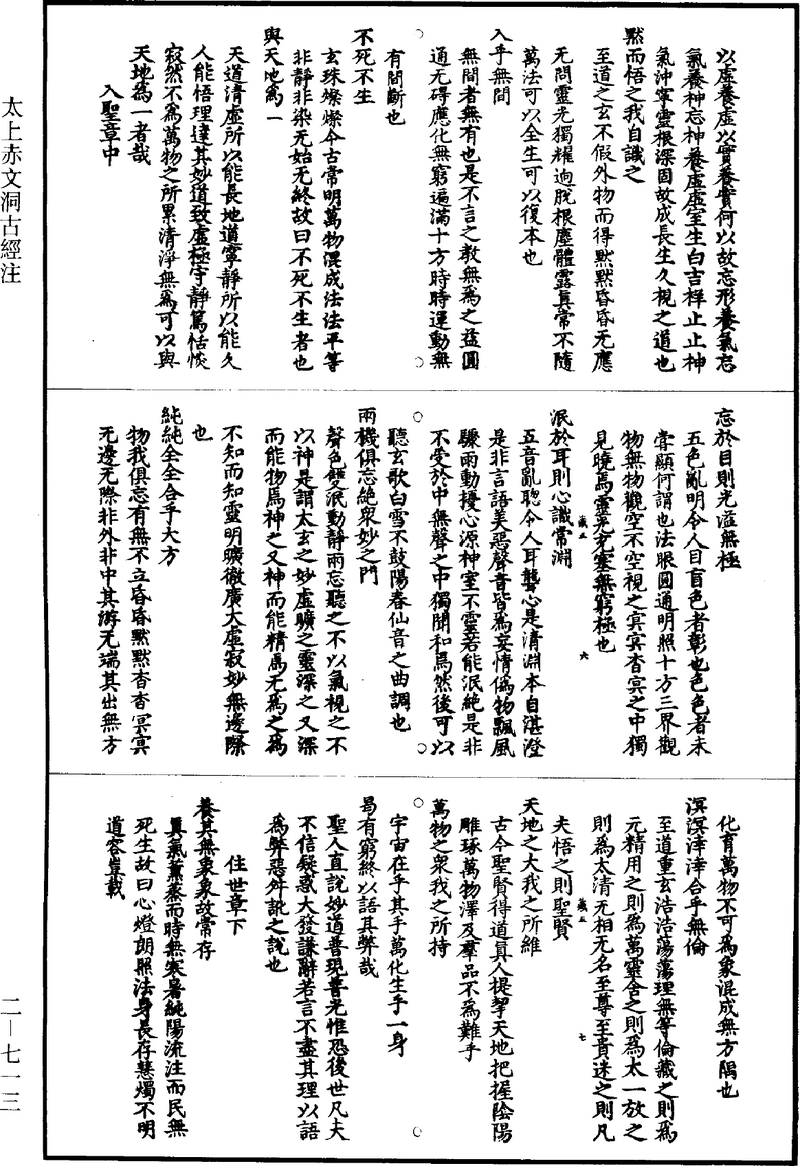 太上赤文洞古經注
以虛養虛以實養實何以故忘形養氣忘
氣養神忘神養虛虛室生白吉祥止止神
氣沖寧靈根深固故成長生久視之道也
默而悟之我自識之
至道之玄不假外物而得默默昏昏无應
无問靈光獨耀逈脫根塵體露真常不隨
萬法可以全生可以復本也
入乎無間
無間者無有也是不言之教無為之益圓
通无碍應化無窮遍滿十方時時運動無
有間斷也
不死不生
玄珠燦燦今古常明萬物混成法法平等
非靜非染无始无終故曰不死不生者也
與天地為一
天道清虛所以能長地道寧靜所以能久
人能悟理達其妙道致虛極守靜篤恬惔
寂然不為萬物之所累清淨無為可以與
天地為一者哉
入聖章中
忘於目則光溢無極
五色亂明令人目盲色者彰也色色者未
嘗顯何謂也法眼圓通明照十方三界觀
物無物觀空不空視之冥冥杳冥之中獨
見曉焉靈光充塞無窮極也
泯於耳則心識常淵
五音亂聰令人耳聾心是清淵本自湛澄
是非言語美惡聲音皆為妄情偽物飄風
驟雨動擾心源神室不靈若能泯絕是非
不受於中無聲之中獨聞和焉然後可以
聽玄歌白雪不鼓陽春仙音之曲調也
兩機俱忘絕眾妙之門
聲色雙泯動靜兩忘聽之不以氣視之不
以神是謂太玄之妙虛曠之靈深之又深
而能物焉神之又神而能精焉无為之為
不知而知靈明曠徹廣大虛寂妙無邊際
也
純純全全合乎大方
物我俱忘有無不立昏昏默默杳杳冥冥
无邊无際非外非中其游无端其出無方
化育萬物不可為象混成無方隅也
溟溟涬涬合乎無倫
至道重玄浩浩蕩蕩理無等倫藏之則為
元精用之則為萬靈舍之則為太一放之
則為太清无相无名至尊至貴迷之則凡
夫悟之則聖賢
天地之大我之所維
古今聖賢得道真人提挈天地把握陰陽
雕琢萬物澤及羣品不為難乎
萬物之眾我之所持
宇宙在乎其手萬化生乎一身
曷有窮終以語其弊哉
聖人直說妙道普現普光惟恐後世凡夫
不信疑惑大發謙辭若言不盡其理以語
為弊惡舛訛之說也
住世章下
養其無象象故常存
真氣薰蒸而時無寒暑純陽流注而民無
死生故曰心燈朗照法身長存慧燭不明
道容豈載
二—七一三